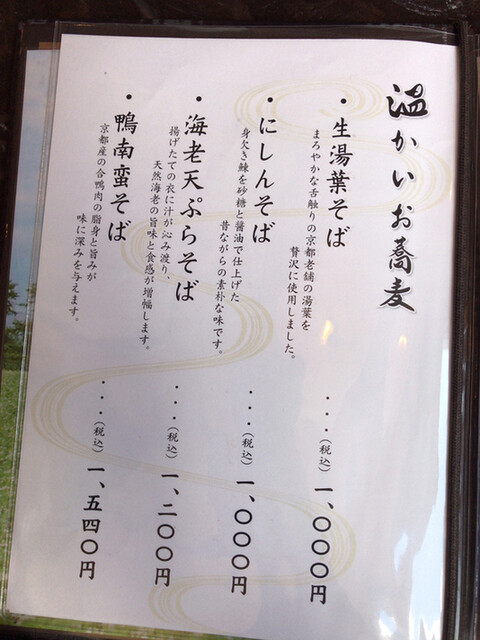 温かいお蕎麦
・生湯葉そば
まろやかな舌触りの京都老舗の湯葉を
贅沢に使用しました。
・・・（税込）一、〇〇〇円
・にしんそば
身欠き鰊を砂糖と醤油で仕上げた
昔ながらの素朴な味です。
・・・（税込）一、〇〇〇円
・海老天ぷらそば
揚げたての衣に汁が沁み渡り、
天然海老の旨味と食感が増幅します。
・・・（税込）一、二〇〇円
・鴨南蛮そば
京都産の合鴨肉の脂身と旨みが
味に深みを与えます。
・・・（税込）一、五四〇円